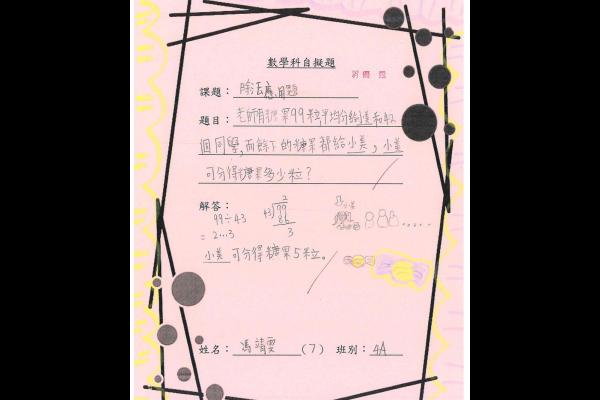 數學科自擬題
課題：除法應用題
題目：老師有糖果99粒平均分給小美和42
個同學,而餘下的糖果都給小美，小美
可分得糖果多少粒？
解答：
99÷43
= 2...3
2
43)99
86
3
小美
小美可分得糖果5粒。
姓名：馮靖雯(7) 班別：4A